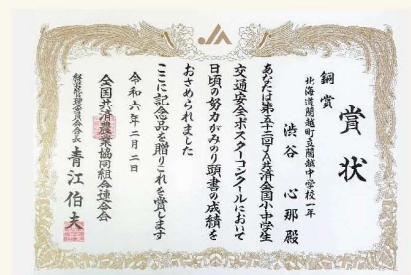 賞状
銅賞
北海道蘭越町立蘭越中学校一年
渋谷 心那 殿
あなたは第五十二回JA共済全国小・中学生
交通安全ポスターコンクールにおいて
日頃の努力がみのり頭書の成績を
おさめられました
ここに記念品を贈りこれを賞します
令和六年二月二日
全国共済農業協同組合連合会
経営管理委員会会長 青江伯夫